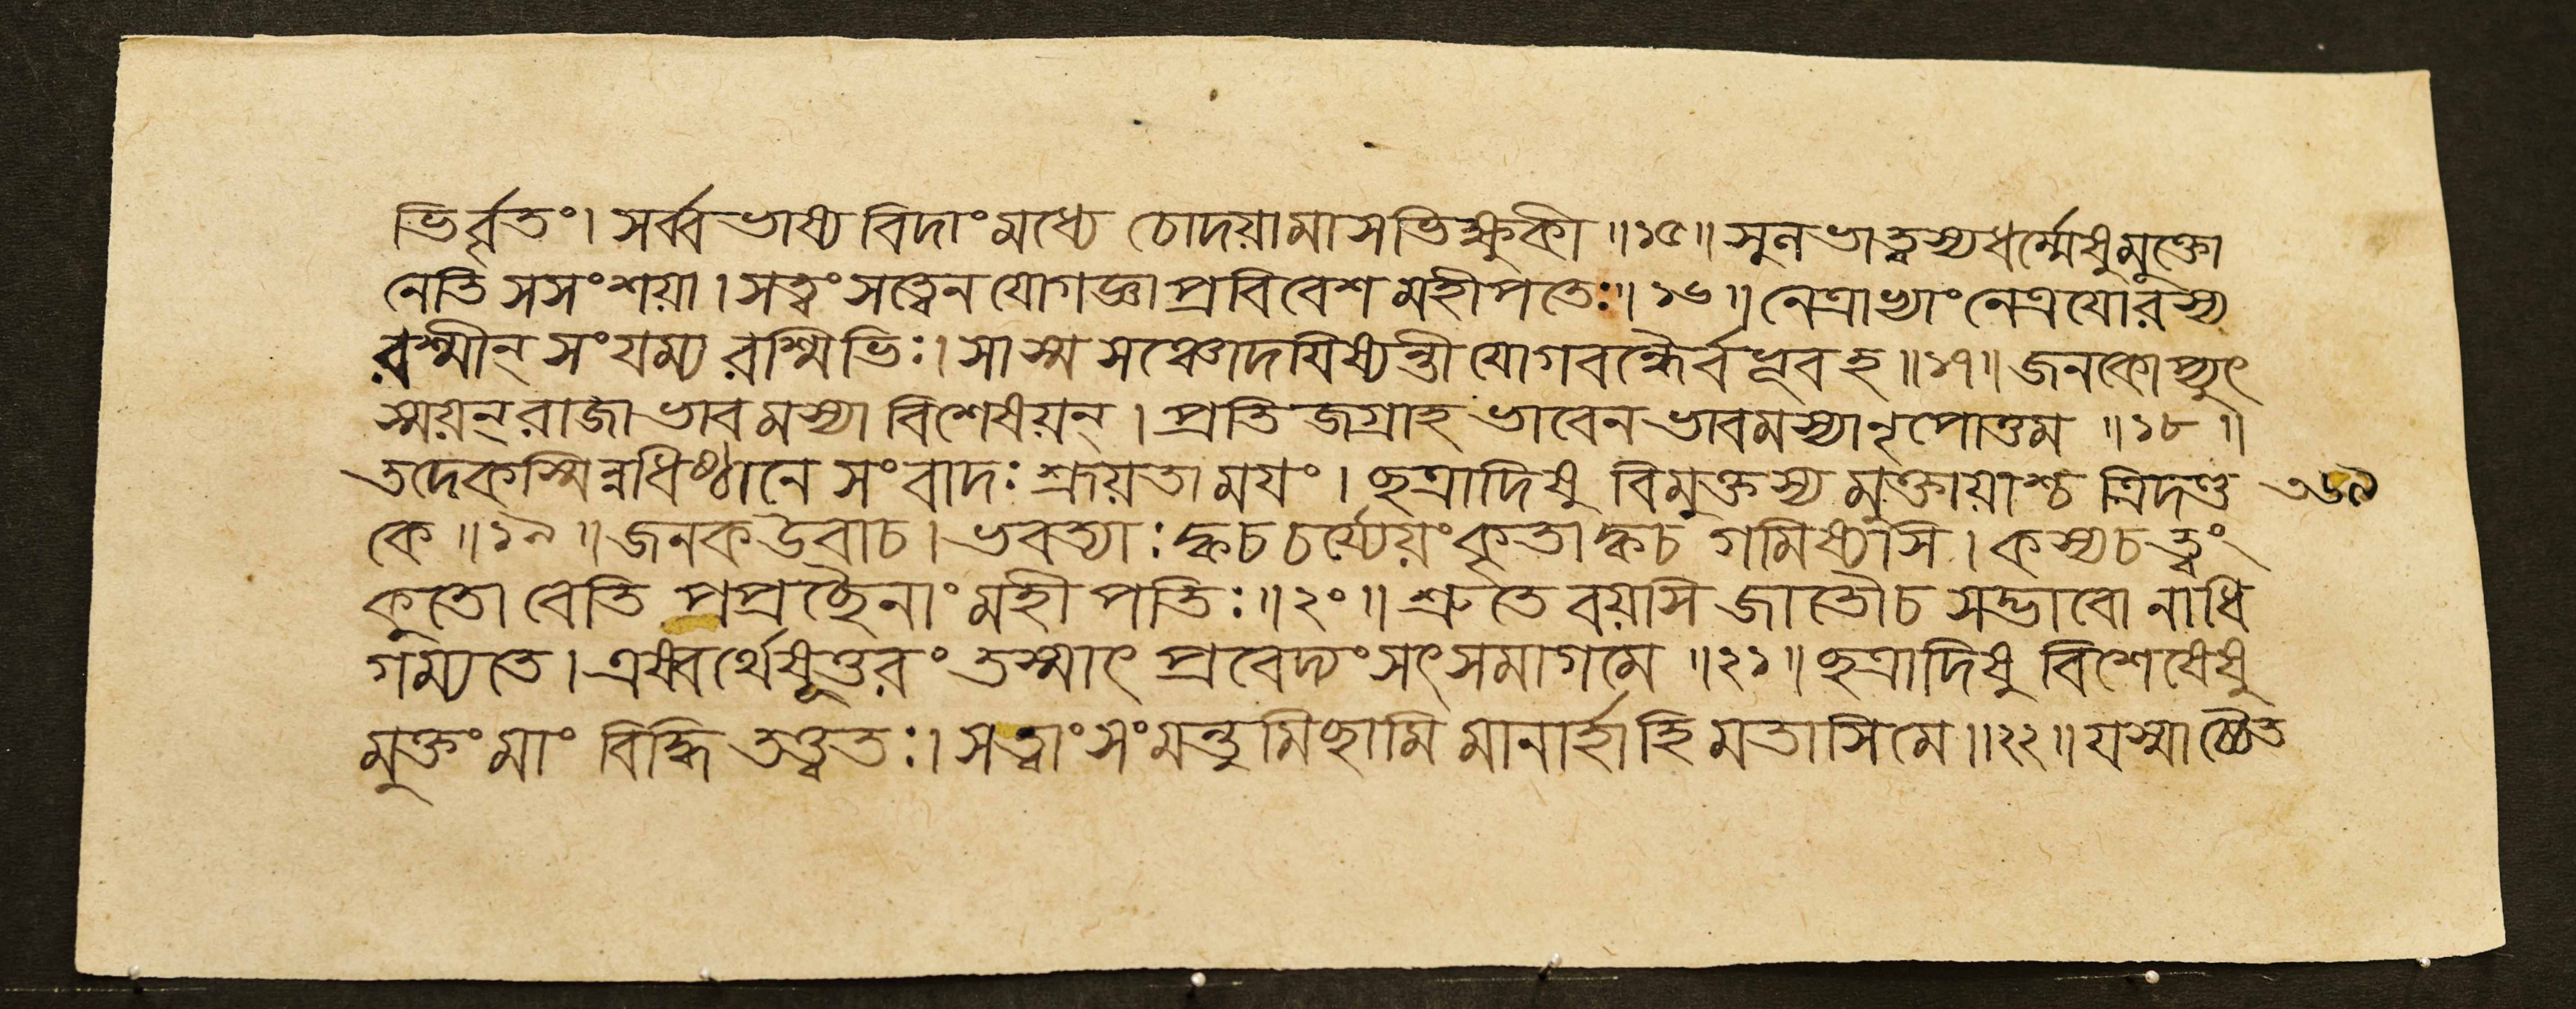 ভির্ব্বৃতং। সর্ব্বভাষ্যবিদাংমধ্যে চোদয়ামাসভিক্ষুকী॥১৫॥ সুলভাত্বস্যধর্ম্মেষুমুক্তো
নেতি সসংশয়া। সত্ত্বংসত্ত্বেন যোগজ্ঞা প্রবিবেশ মহীপতেঃ॥১৬॥ নেত্রাভ্যাং নেত্রযোরস্য
রশ্মীন্ সংযম্য রশ্মিভিঃ। সাস্ম সঞ্চোদযিষ্যন্তী যোগবন্ধৈর্ববন্ধহ॥১৭॥ জনকোপ্যুৎ
স্ময়ন্ রাজা ভাবমস্যা বিশেষয়ন্। প্রতিজগ্রাহ ভাবেন ভাবমস্যানৃপোত্তম॥১৮॥
তদেকস্মিন্নধিষ্ঠানে সংবাদঃ শ্রূয়তাময়ং। ছত্রাদিষু বিমুক্তস্য মুক্তায়াশ্চ ত্রিদণ্ড ৩৬৯
কে॥১৯॥ জনকউবাচ। ভবত্যাঃ ক্বচ চর্য্যেয়ং কৃতা ক্বচ গমিষ্যসি। কস্যচত্বং
কুতো বেতি পপ্রচ্ছৈনাং মহীপতিঃ॥২০॥ শ্রুতে বয়সি জাতৌচ সদ্ভাবো নাধি
গম্যতে। এষ্বর্থেষূত্তরং তস্মাৎ প্রবেদ্যং সৎসমাগমে॥২১॥ ছত্রাদিষু বিশেষেষু
মুক্তং মাং বিদ্ধি তত্ত্বতঃ। সত্বাং সংমন্তুমিচ্ছামি মানার্হাহি মতাসি মে॥২২॥ যস্মাচ্চৈত